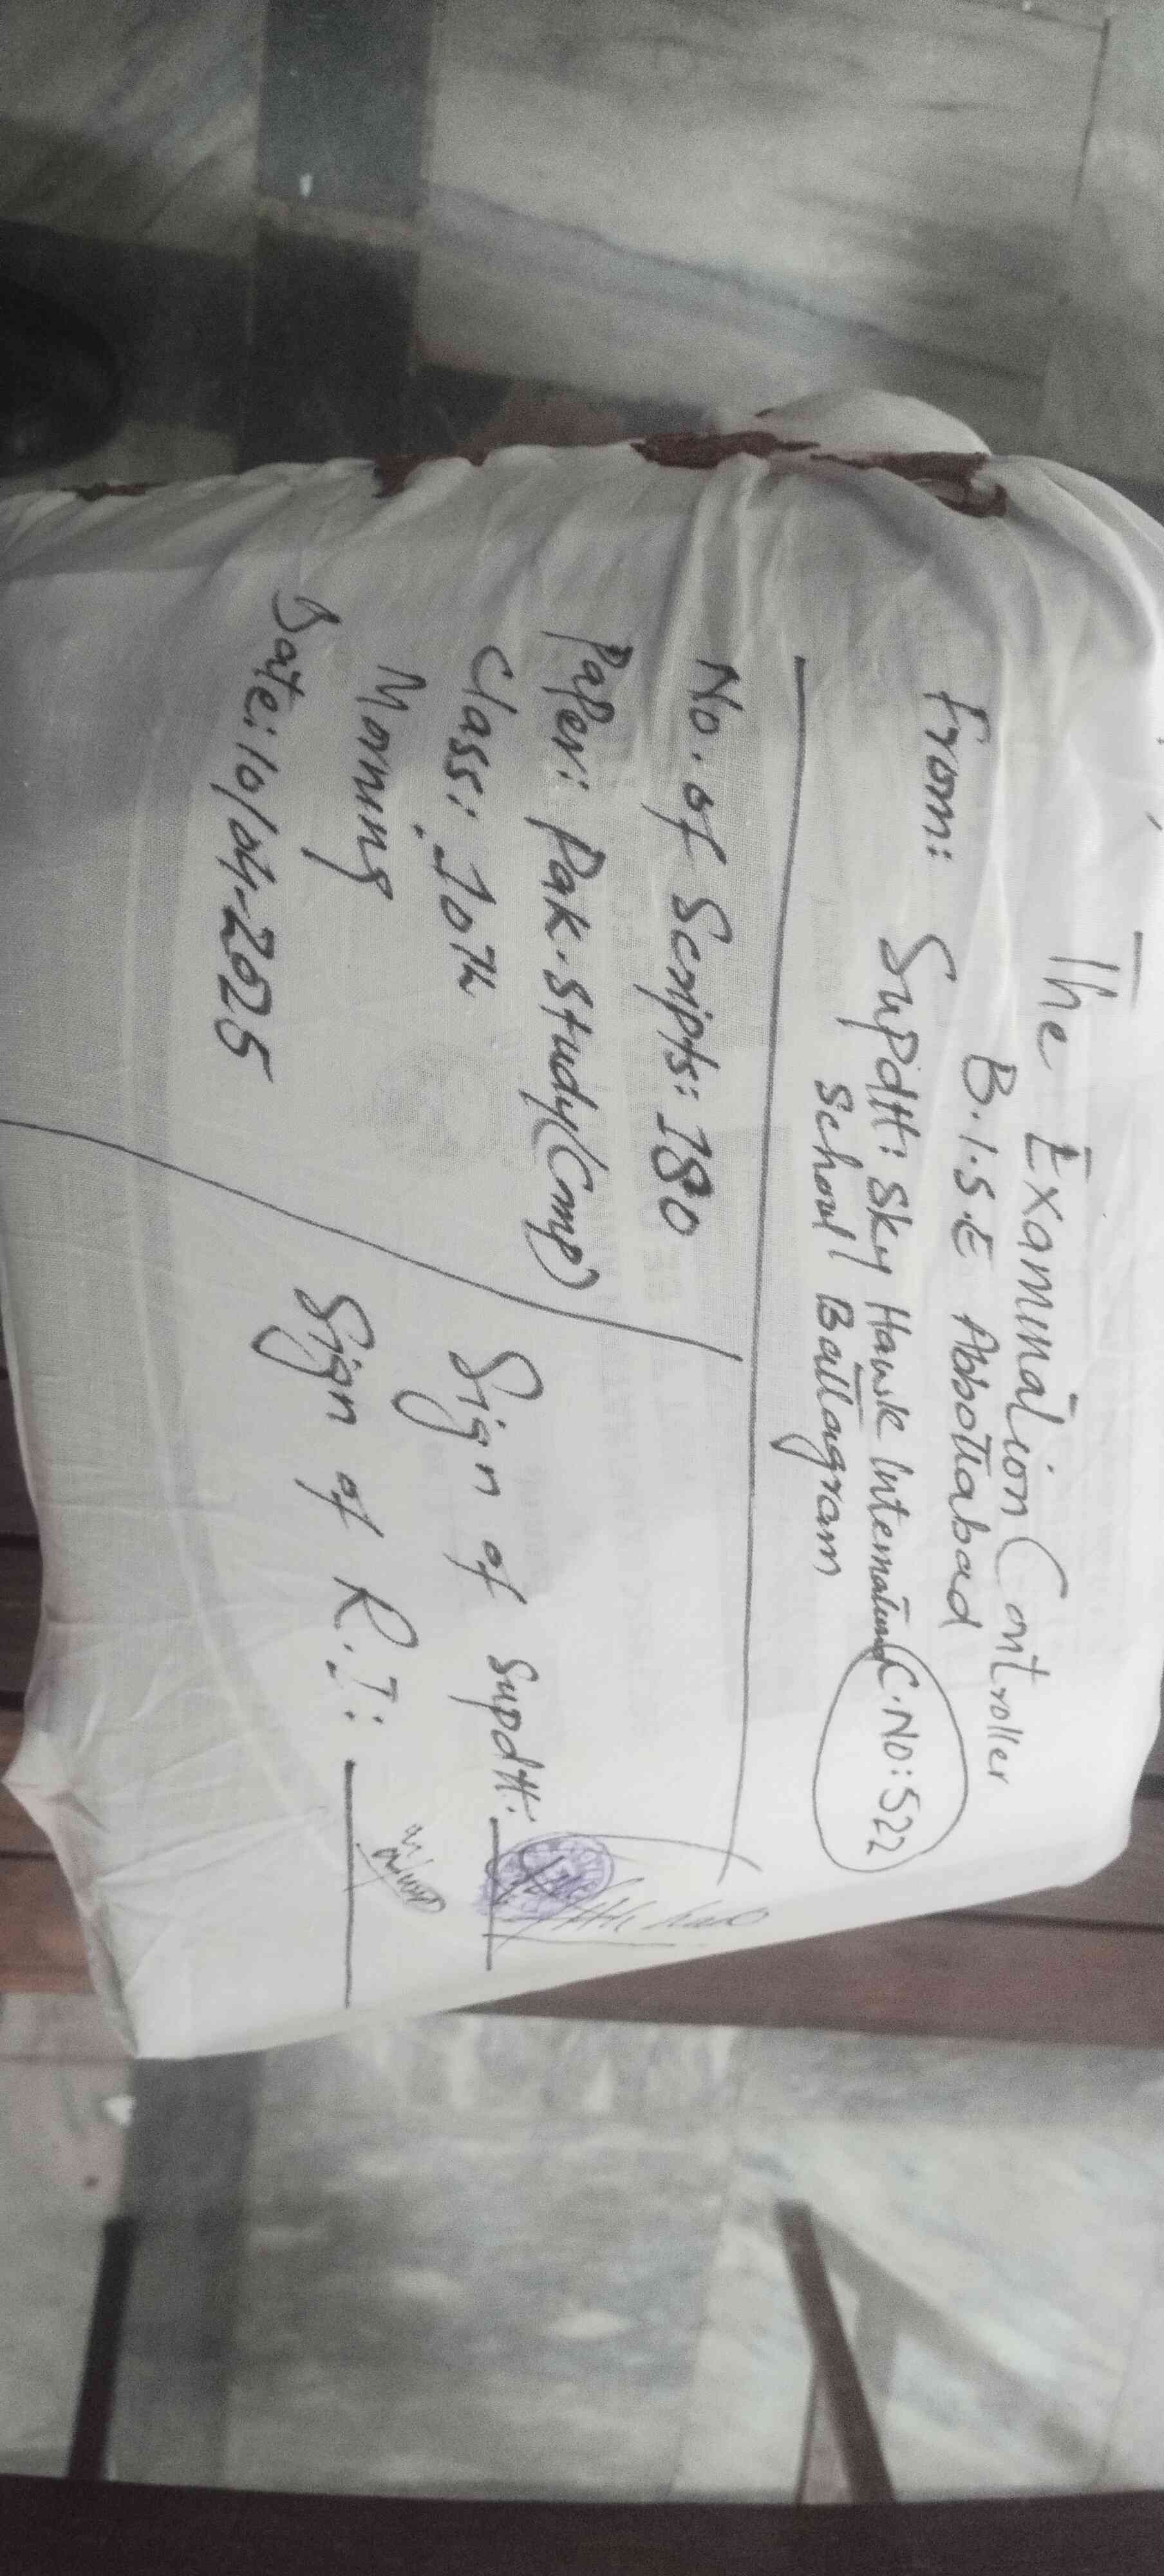 The Examination Controller
B.I.S.E Abbottabad
From: Supdtt: Sky Hawk International C.No: 522
School Battagram
No. of Scripts: 180
Paper: Pak.Study (Comp)
Class: 10th
Morning
Date: 10/04-2025
Sign of Supdtt:
Sign of R.I: